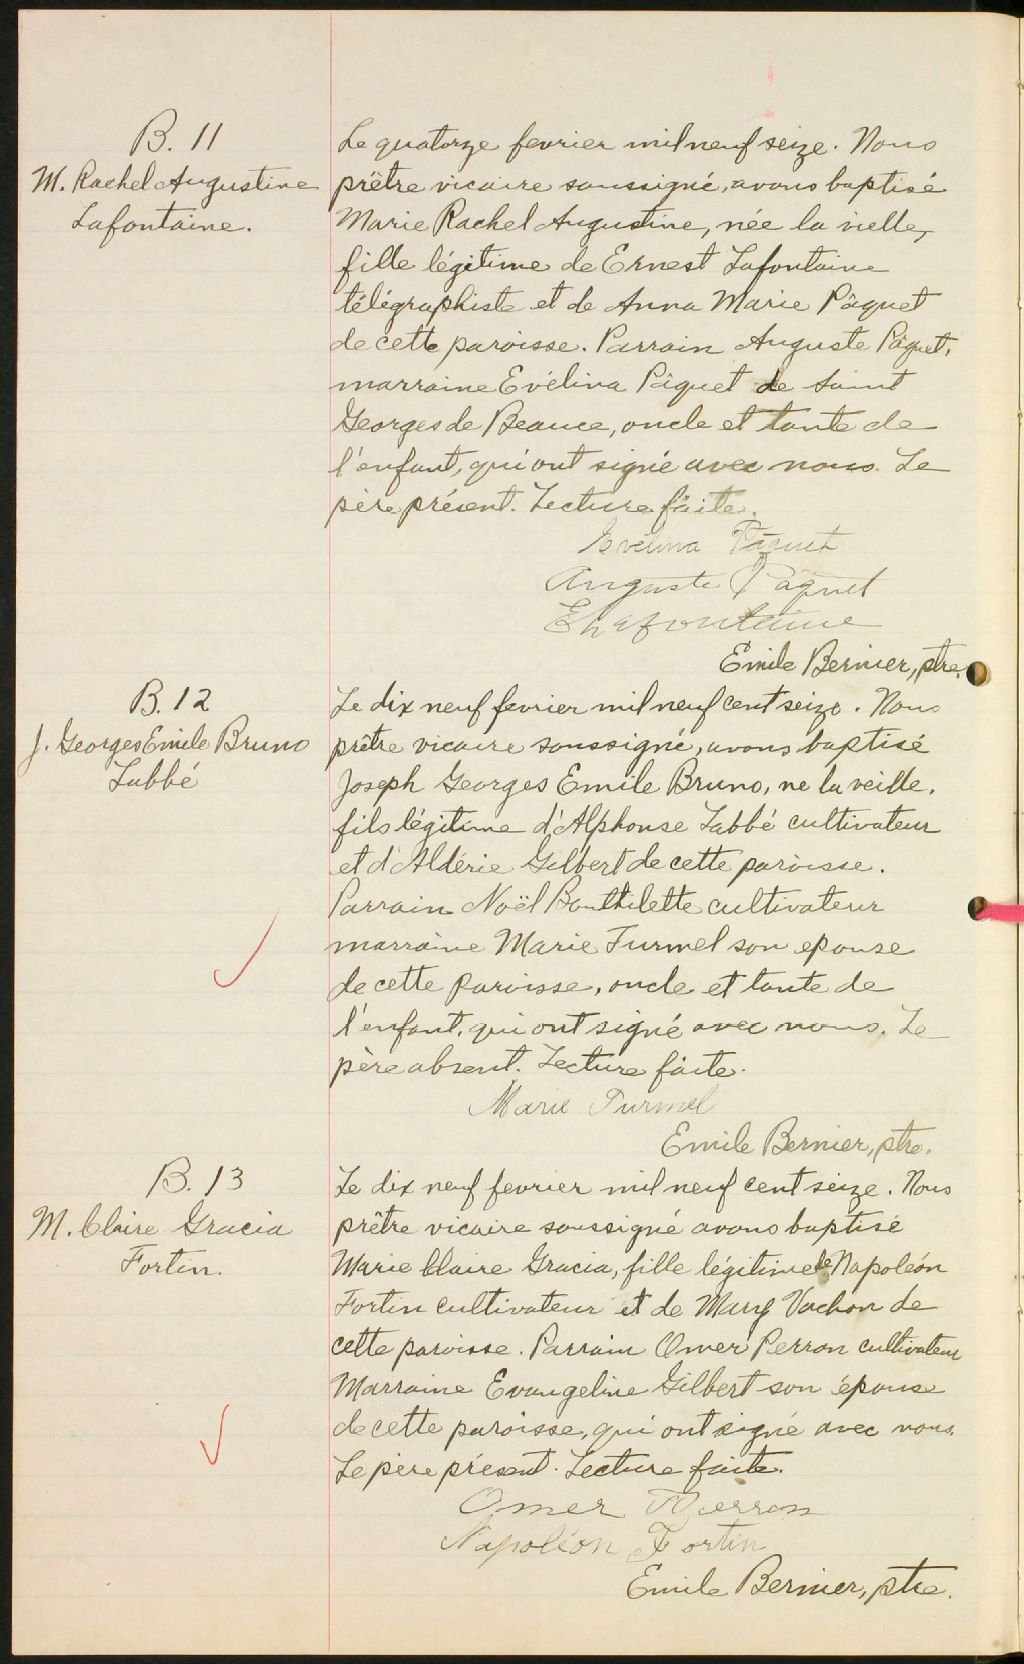 B. 11
M. Rachel Augustine
Lafontaine.
Le quatorze fevrier mil neuf seize. Nous
prêtre vicaire soussigné, avons baptisé
Marie Rachel Augustine, née la vielle,
fille légitime de Ernest Lafontaine
télégraphiste et de Anna Marie Pâquet
de cette paroisse. Parrain Auguste Pâquet,
marraine Evélina Pâquet de Saint
Georges de Beauce, oncle et tante de
l'enfant, qui ont signé avec nous. Le
père présent. Lecture faite.
Evélina Pâquet
Auguste Pâquet
E Lafontaine
Emile Bernier, ptre.
B. 12
J. Georges Emile Bruno
Labbé
Le dix neuf fevrier mil neuf cent seize. Nous
prêtre vicaire soussigné, avons baptisé
Joseph Georges Emile Bruno, ne la veille,
fils légitime d'Alphonse Labbé cultivateur
et d'Aldérie Gilbert de cette paroisse.
Parrain Noël Bouthilette cultivateur
marraine Marie Turmel son epouse
de cette paroisse, oncle et tante de
l'enfant, qui ont signé avec nous. Le
père absent. Lecture faite.
Marie Turmel
Emile Bernier, ptre.
B. 13
M. Claire Gracia
Fortin.
Le dix neuf fevrier mil neuf cent seize. Nous
prêtre vicaire soussigné avons baptisé
Marie Claire Gracia, fille légitime de Napoléon
Fortin cultivateur et de Mary Vachon de
cette paroisse. Parrain Omer Perron cultivateur
Marraine Evangeline Gilbert son épouse
de cette paroisse, qui ont signé avec nous.
Le père présent. Lecture faite.
Omer Perron
Napoléon Fortin
Emile Bernier, ptre.